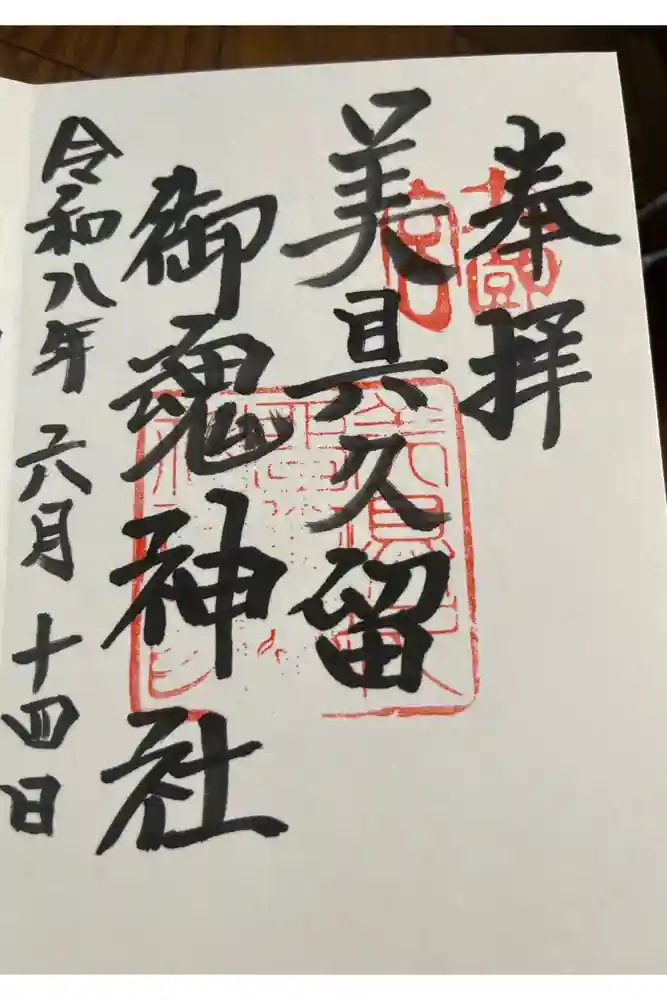 奉拝
美具久留
御魂神社
令和八年 六月 十四日